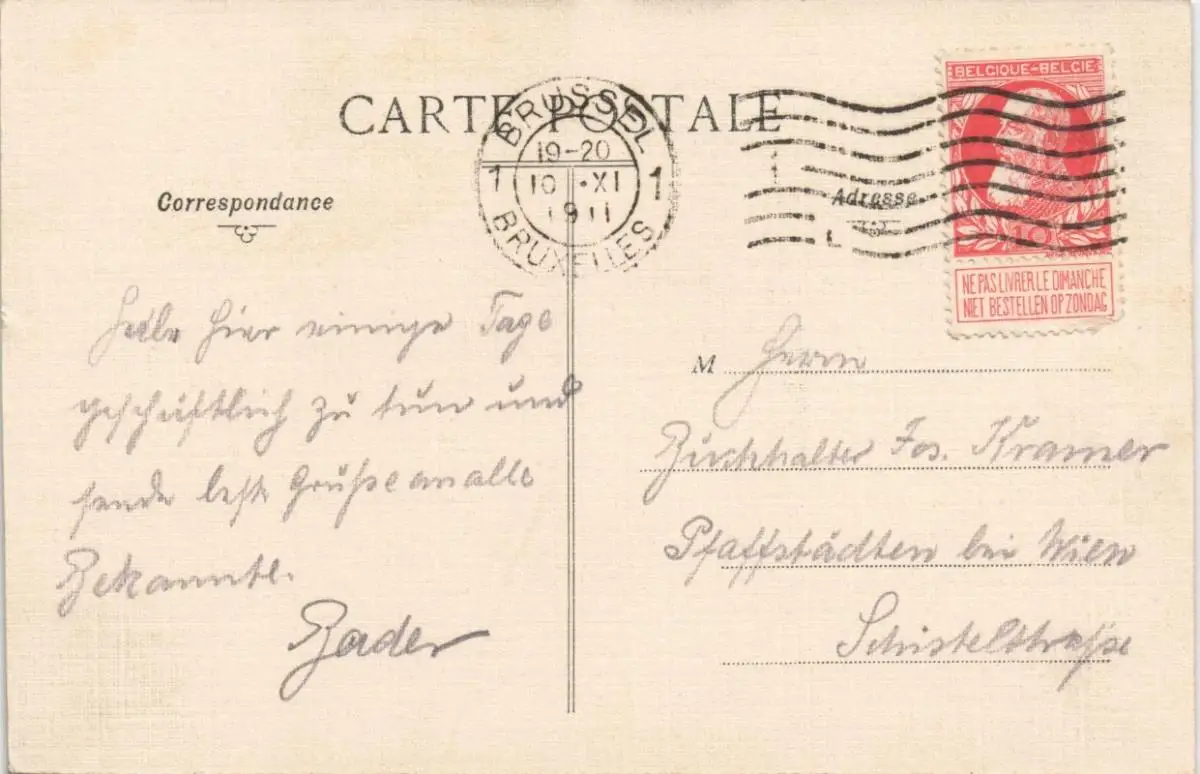 CARTE POSTALE
BRUSSEL
19-20
1 10 ·XI 1
1911
BRUXELLES
BELGIQUE-BELGIE
10
NE PAS LIVRER LE DIMANCHE
NIET BESTELLEN OP ZONDAG
Correspondance
Habe hier einige Tage
geschäftlich zu tun und
sende beste Grüße an alle
Bekannte.
Bader
Adresse
M Herrn
Buchhalter Jos. Kramer
Pfaffstädten bei Wien